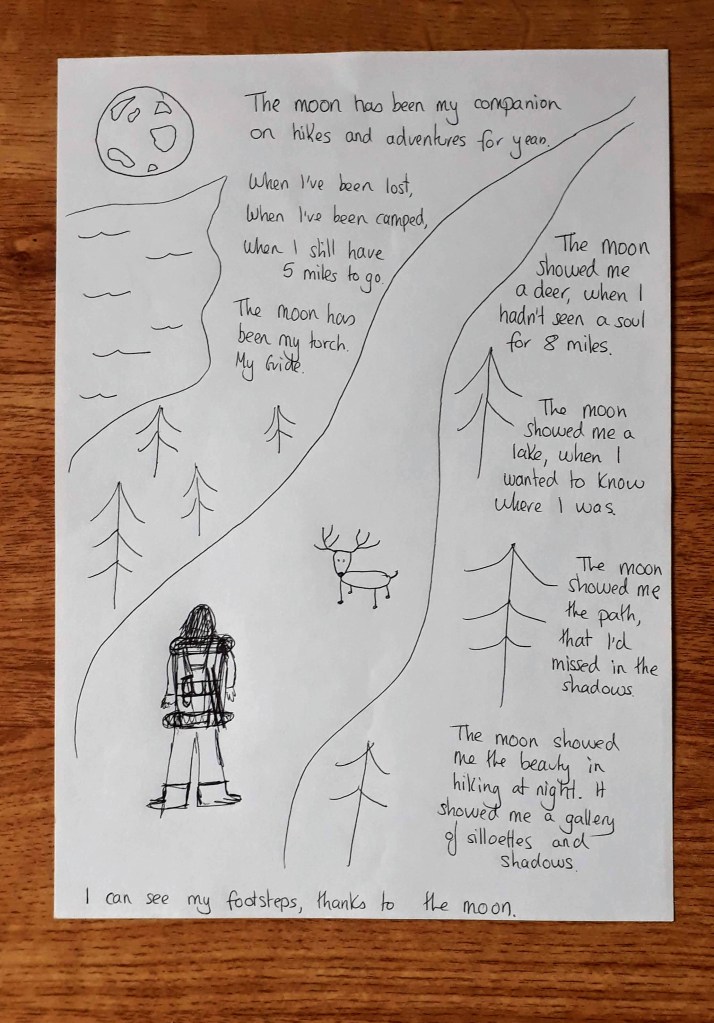 The moon has been my companion
on hikes and adventures for years.
When I've been lost,
When I've been camped,
When I still have
5 miles to go.
The moon has
been my torch.
My Guide.
The moon
showed me
a deer, when I
hadn't seen a soul
for 8 miles.
The moon
showed me a
lake, when I
wanted to know
where I was.
The moon
showed me
the path,
that I'd
missed in the
shadows.
The moon showed
me the beauty in
hiking at night. It
showed me a gallery
of silloettes and
shadows.
I can see my footsteps, thanks to the moon.